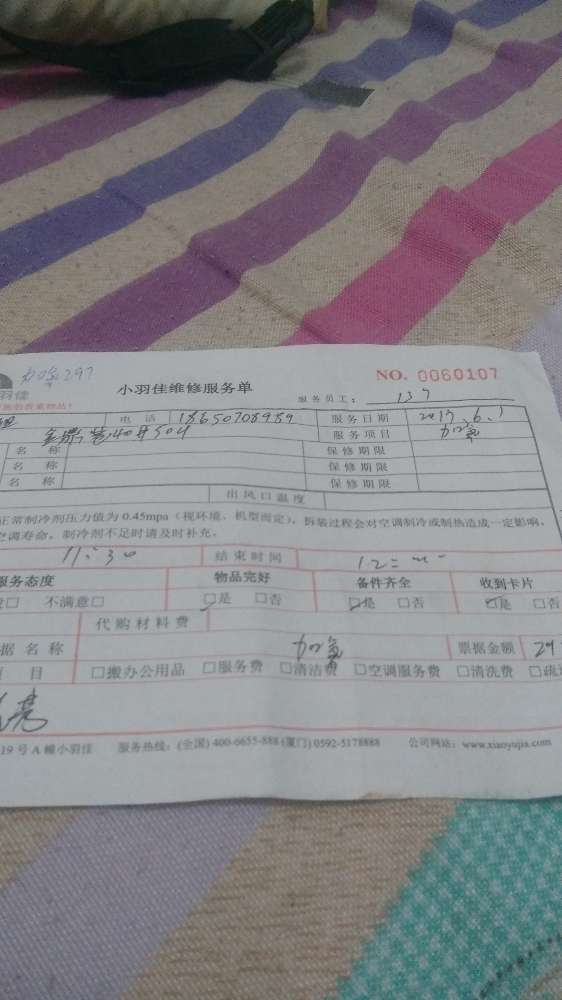 加氟297
羽佳
小羽佳维修服务单
NO. 0060107
服务员工: 137
电 话 18650708989 服务日期 2017.6.1
服务项目 加氟
名 称 保修期限
名 称 保修期限
名 称 保修期限
出风口温度
正常制冷剂压力值为 0.45mpa (视环境、机型而定), 拆装过程会对空调制冷或制热造成一定影响,
空调寿命, 制冷剂不足时请及时补充。
11:30 结束时间 12:
服务态度 物品完好 备件齐全 收到卡片
□ 不满意□ □是 □否 □是 □否 □是 □否
代购材料费
据 名 称 加氟 票据金额 297
项 目 □搬办公用品 □服务费 □清洁费 □空调服务费 □清洗费 □疏
19 号 A 幢小羽佳 服务热线: (全国) 400-6655-888 (厦门) 0592-5178888 公司网站: www.xiaoyujia.com